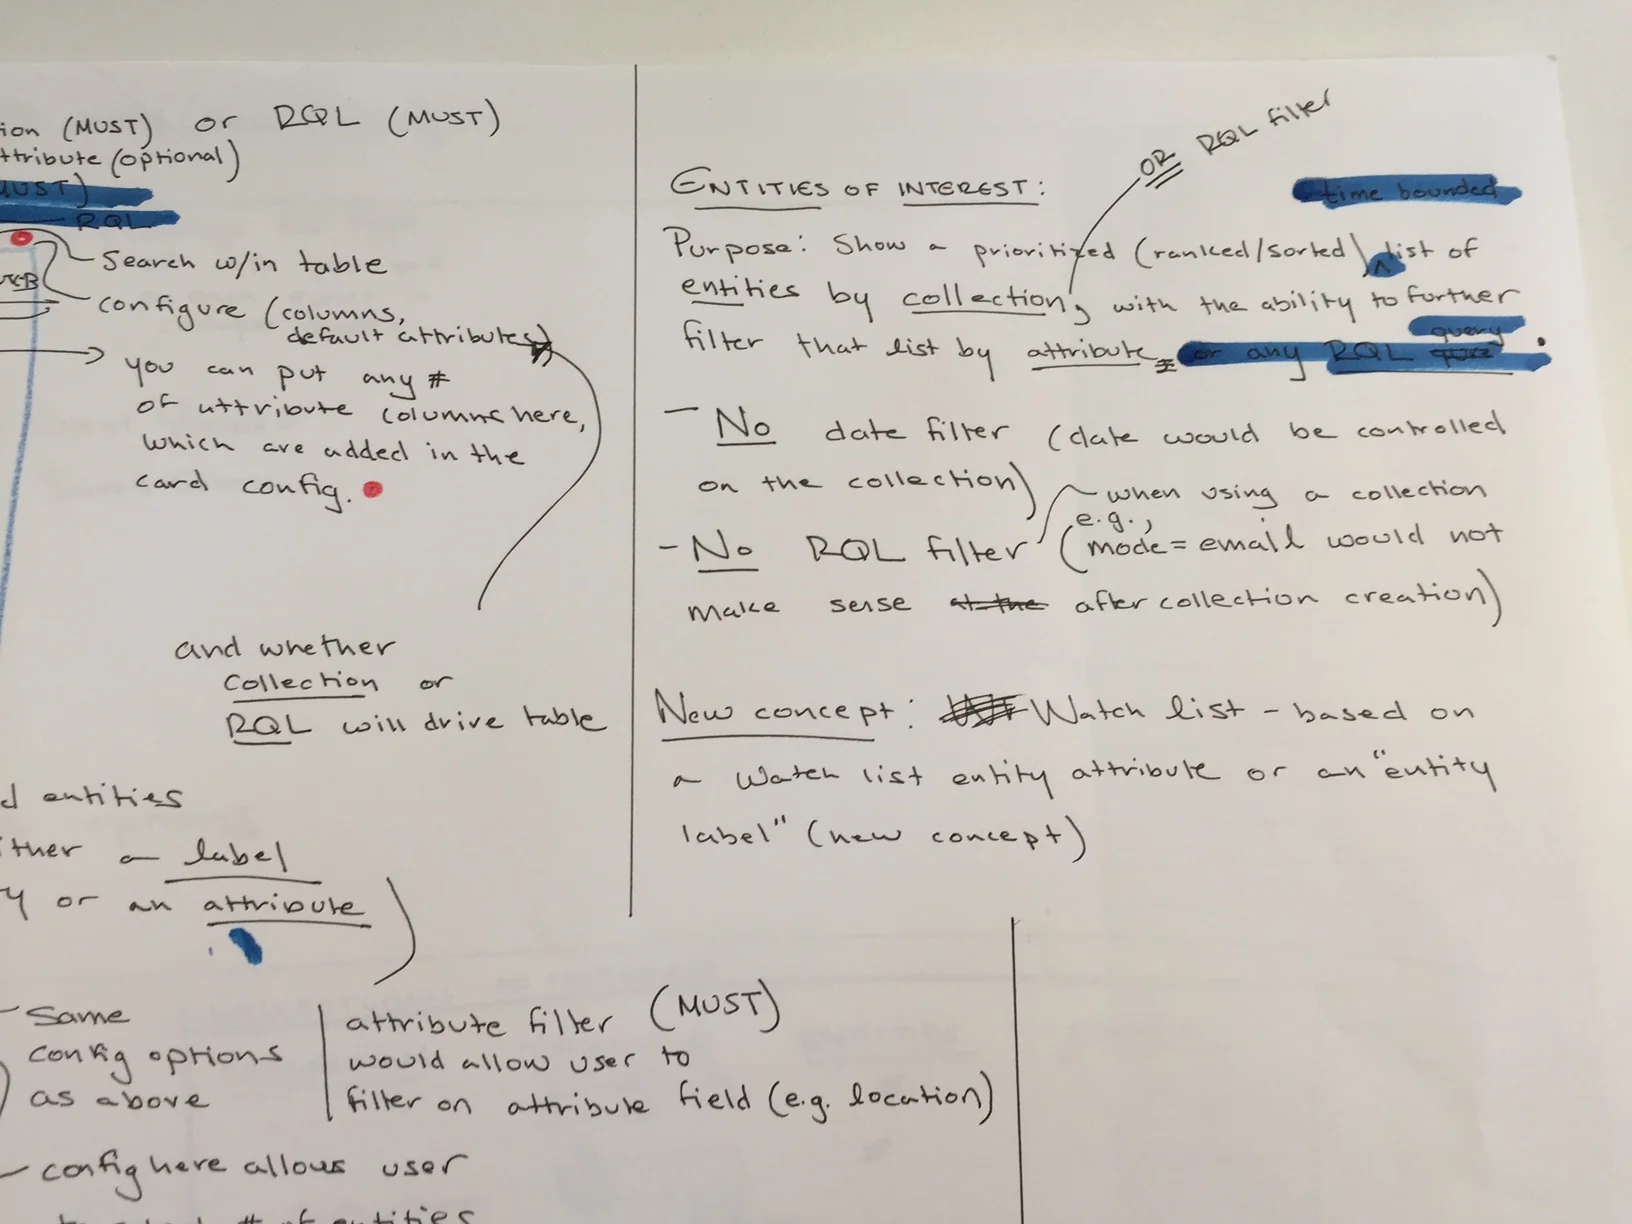 ion (MUST) or RQL (MUST)
ttribute (optional)
MUST)
RQL
Search w/in table
configure (columns,
default attributes)
you can put any #
of attribute columns here,
which are added in the
card config.
and whether
collection or
RQL will drive table
d entities
ither a label
y or an attribute
Same
config options
as above
attribute filter (MUST)
would allow user to
filter on attribute field (e.g. location)
config here allows user
# of entities
OR RQL filter
ENTITIES OF INTEREST:
time bounded
Purpose: Show a prioritized (ranked/sorted) ^ list of
entities by collection, with the ability to further
filter that list by attribute. or any RQL query.
- No date filter (date would be controlled
on the collection)
when using a collection
- No RQL filter (e.g., mode = email would not
make sense at the after collection creation)
New concept: Watch list - based on
a watch list entity attribute or an "entity
label" (new concept)